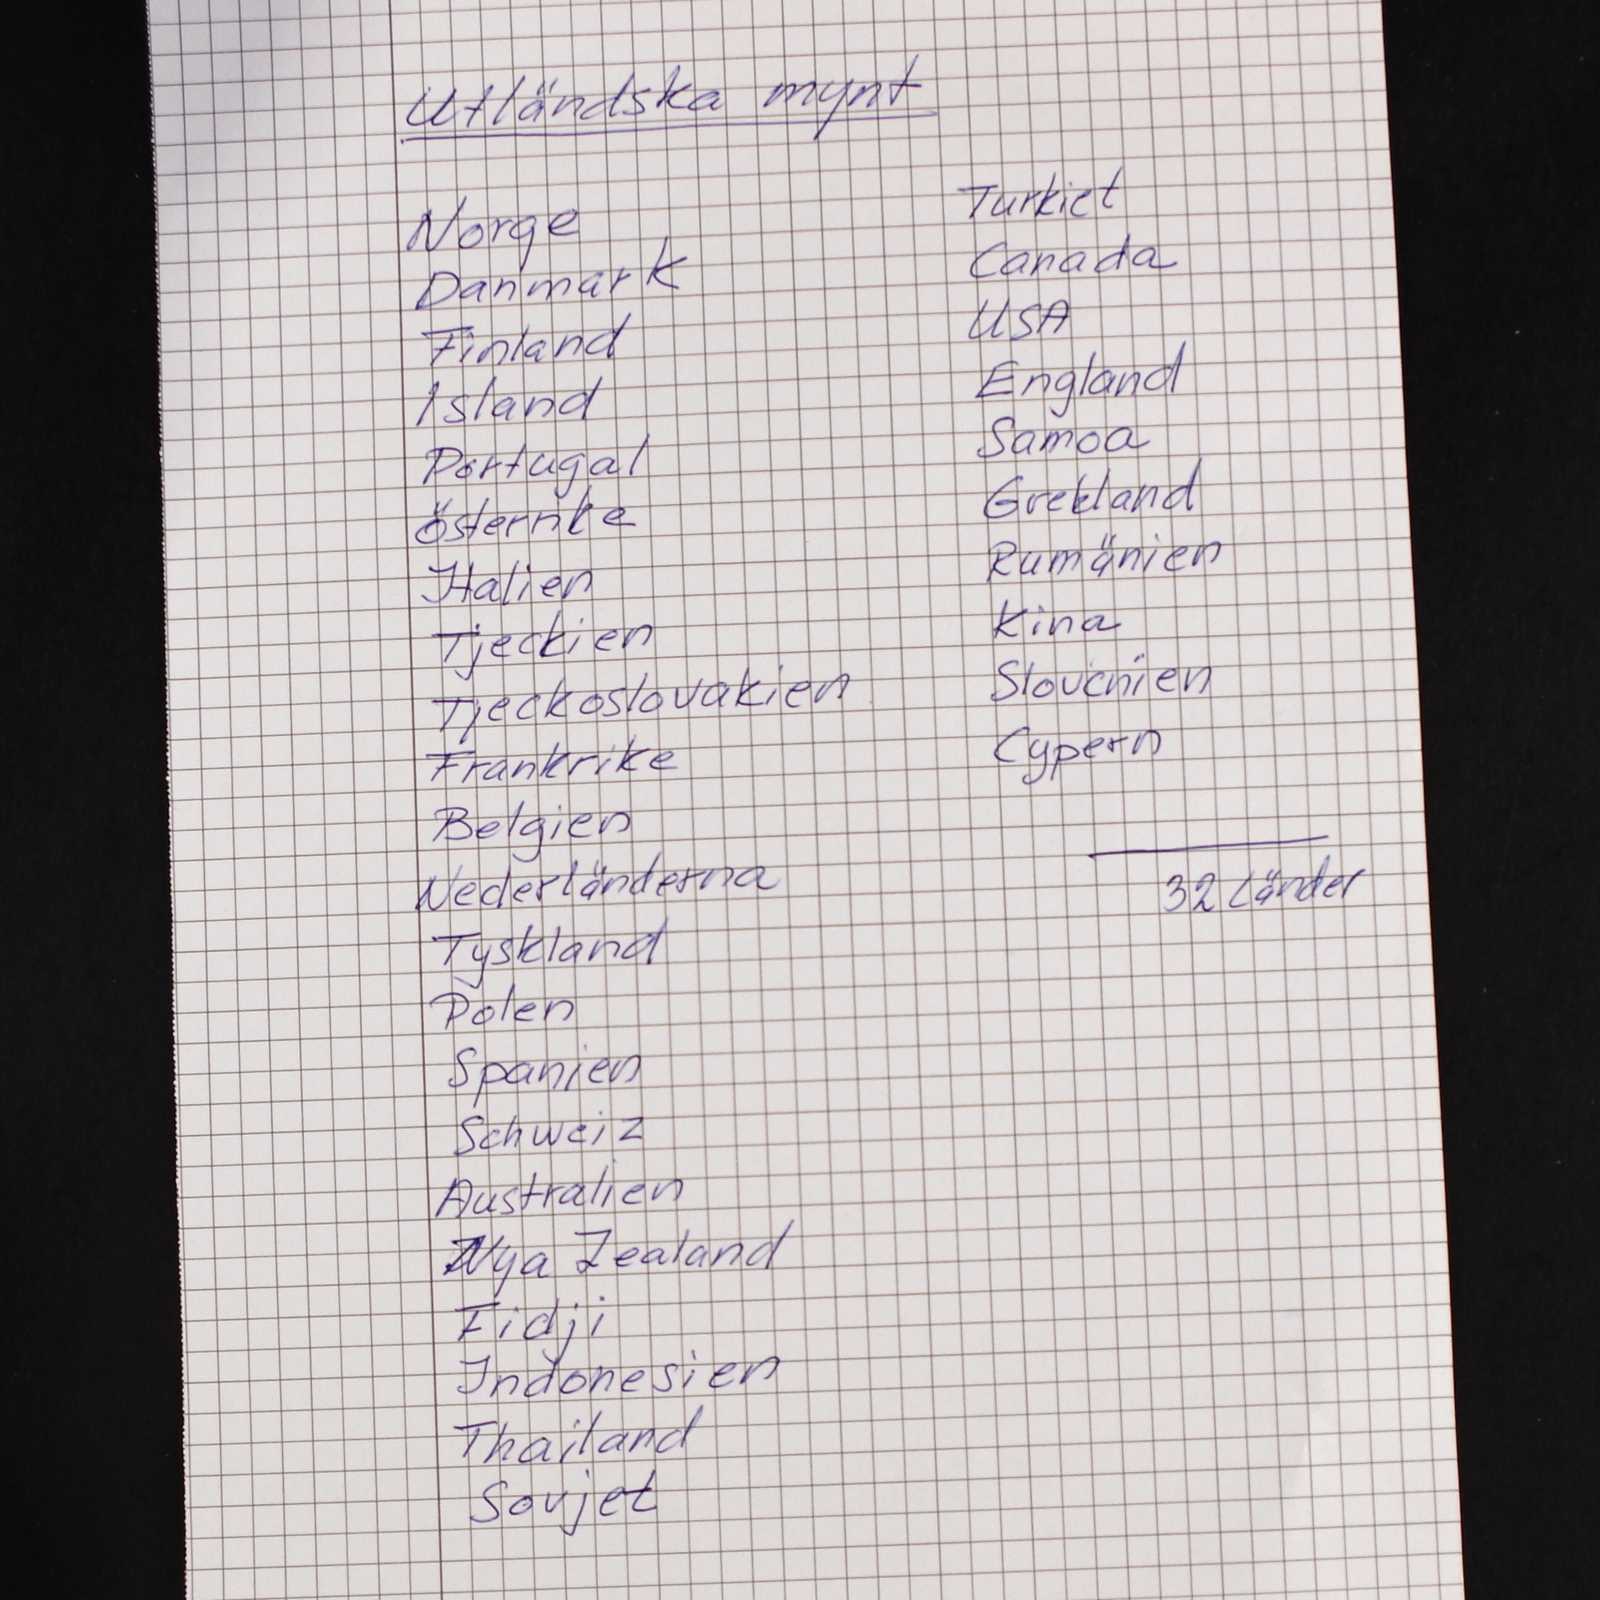 Utländska mynt
Norge
Danmark
Finland
Island
Portugal
Österrike
Italien
Tjeckien
Tjeckoslovakien
Frankrike
Belgien
Nederländerna
Tyskland
Polen
Spanien
Schweiz
Australien
Nya Zealand
Fidji
Indonesien
Thailand
Sovjet
Turkiet
Canada
USA
England
Samoa
Grekland
Rumänien
Kina
Slovenien
Cypern
32 Länder